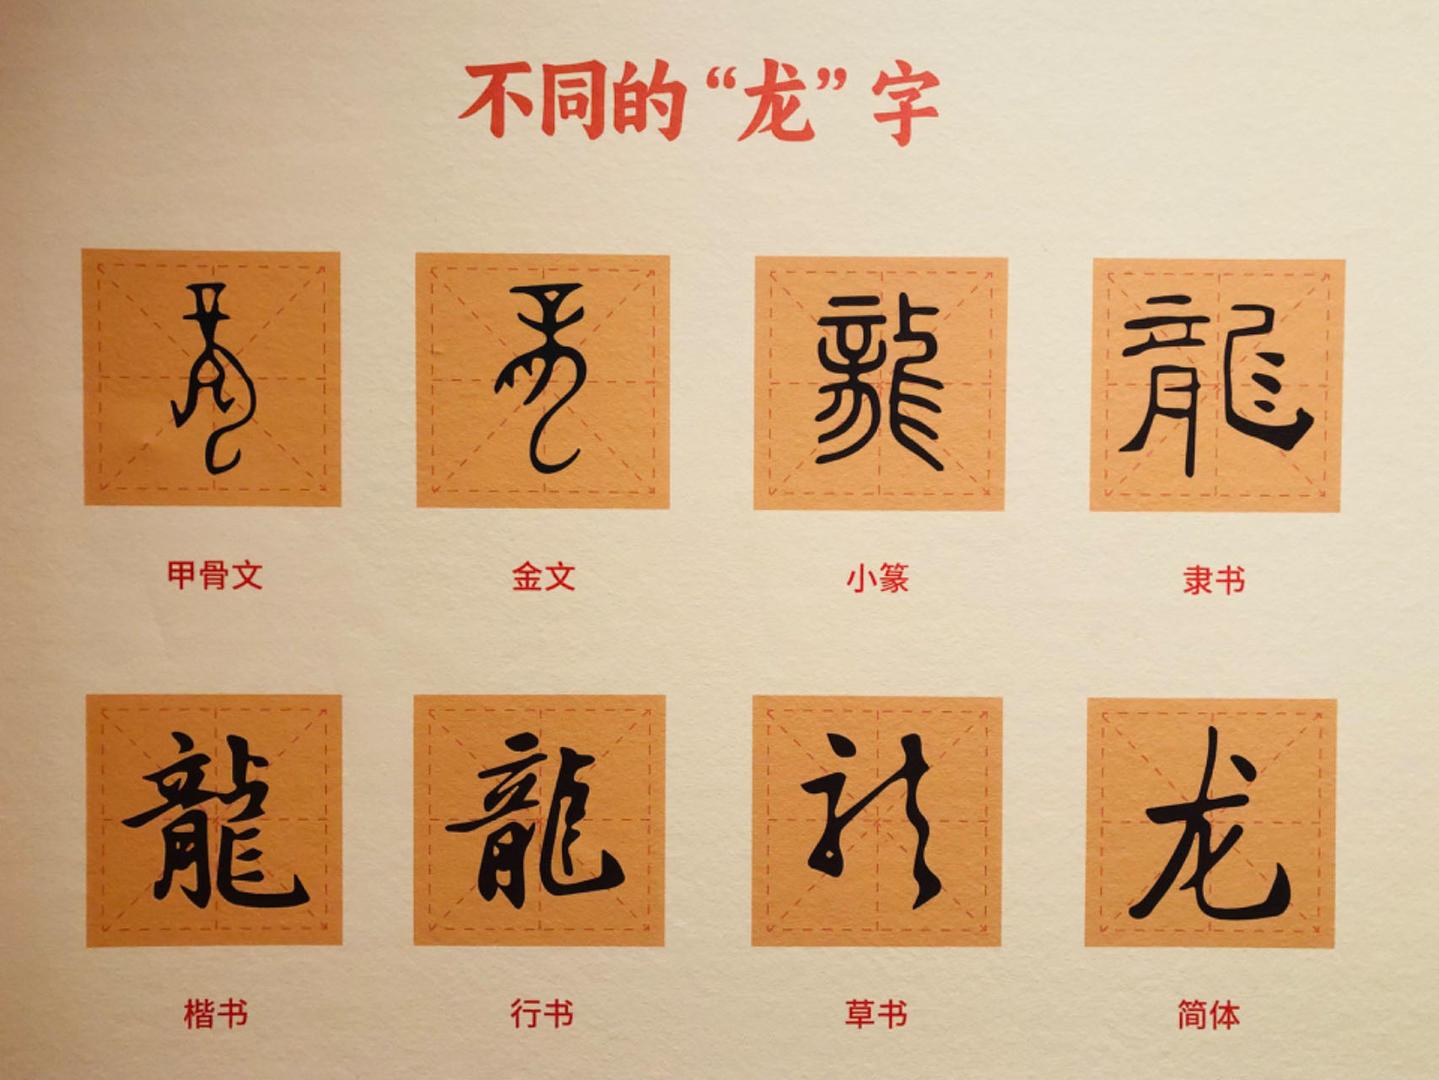 不同的“龙”字
龍 龍 龍 龍
甲骨文 金文 小篆 隶书
龍 龍 龍 龙
楷书 行书 草书 简体